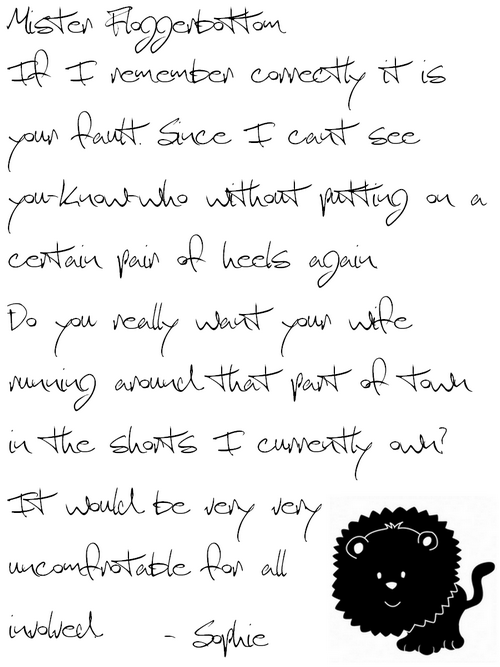 Mister Floggerbottom
If I remember correctly it is
your fault. Since I can't see
you-know-who without putting on a
certain pair of heels again
Do you really want your wife
running around that part of town
in the shorts I currently own?
It would be very very
uncomfrotable for all
involved - Sophie